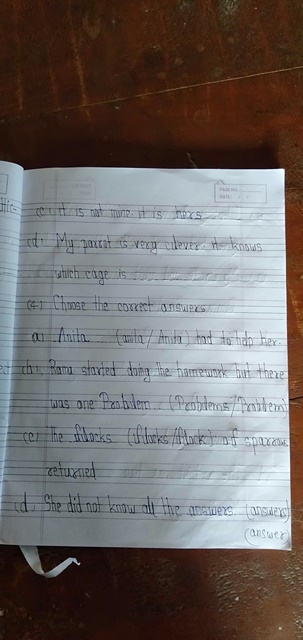 PAGE NO.
DATE:
(c) It is not mine. it is hers
(d) My parrot is very clever. it knows
which cage is
(4) Choose the correct answers
a) Anita (anita/Anita) had to help her.
(b) Rama started doing the homework but there
was one Problem (Problems/Problem)
(c) The flocks (flocks/flock) of sparrow
returned
(d) She did not know all the answers (answers)
(answer)